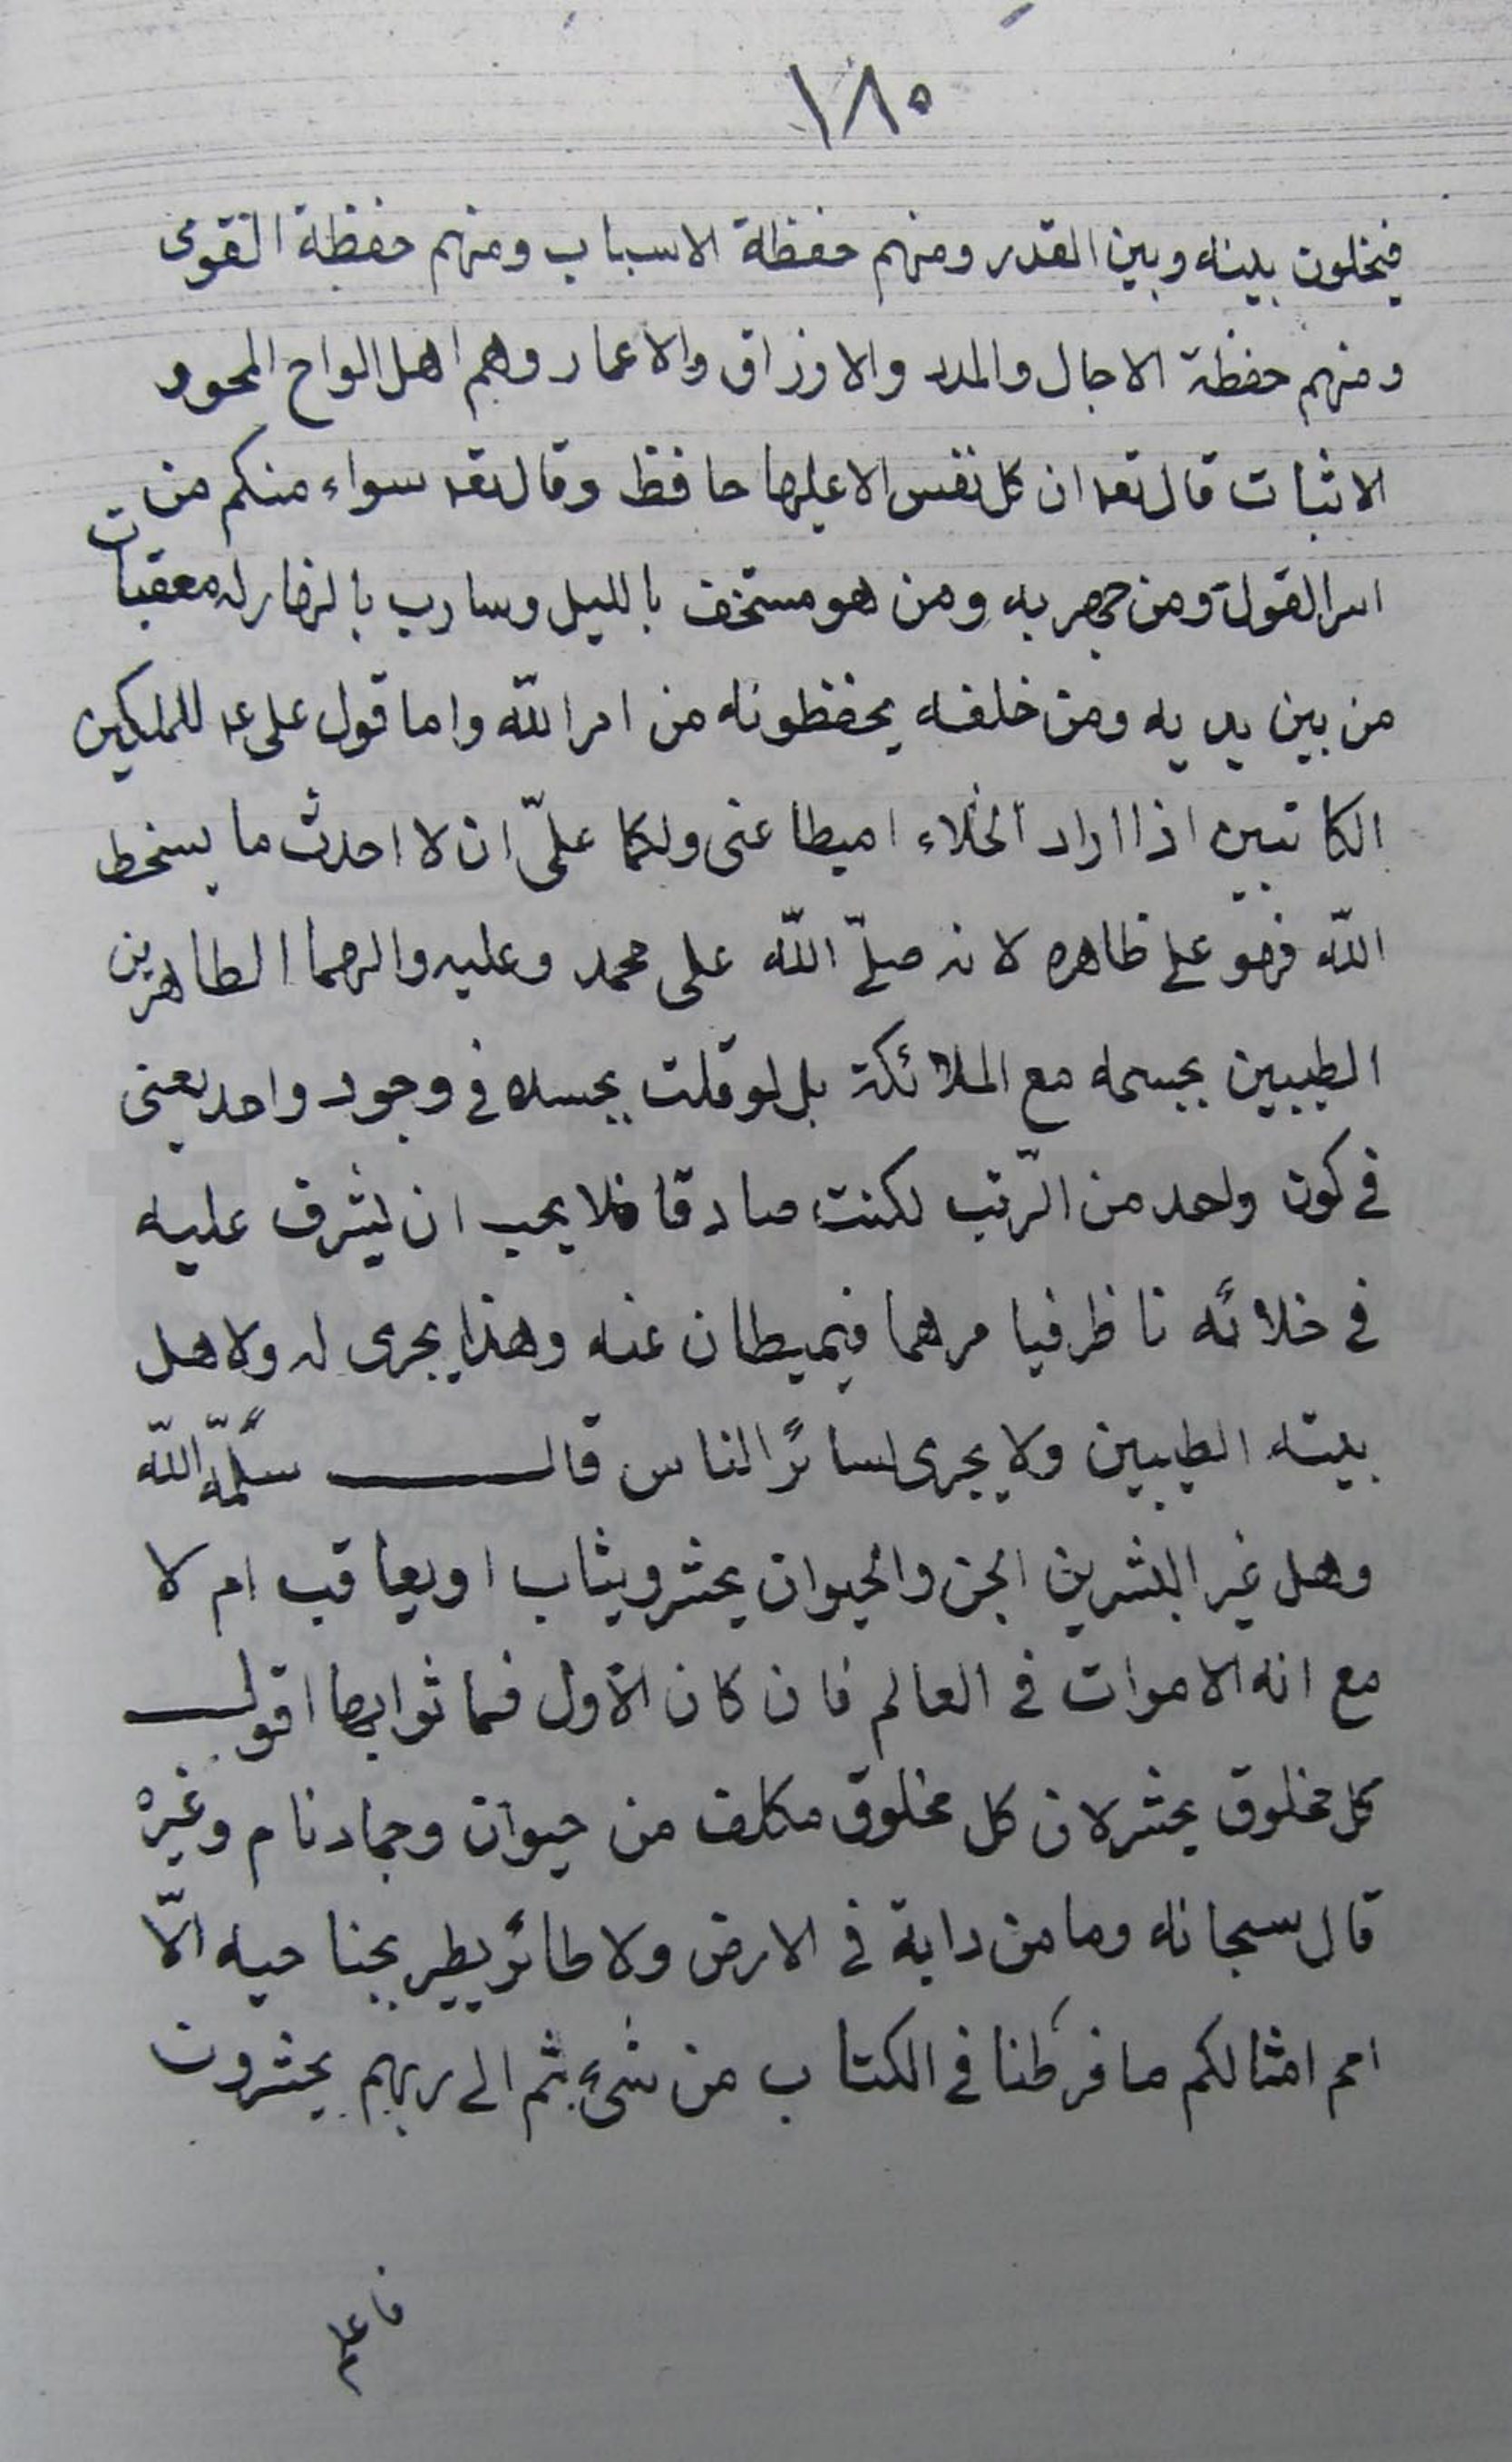 ١٨٠
فيخلون بينه وبين القدر ومنهم حفظة الاسباب ومنهم حفظة القوى
ومنهم حفظة الاجال والمدد والارزاق والاعمار وهم اهل الواح المحو و
الاثبات قال تعه ان كل نفس الا عليها حافظ وقال تعه سواء منكم من
اسر القول ومن جهر به ومن هو مستخف بالليل وسارب بالنهار له معقبات
من بين يديه ومن خلفه يحفظونه من امر الله واما قول علي ع للملكين
الكاتبين اذا اراد الخلاء اميطا عنى ولكما علىّ ان لا احدث ما يسخط
اللّه فهو على ظاهره لانه صلّى اللّه على محمد وعليه والهما الطاهرين
الطيبين بجسمه مع الملائكة بل لو قلت بجسده فى وجود واحد يعنى
فى كون واحد من الرّتب لكنت صادقا فلا يحب ان يشرف عليه
فى خلائه ناظر فيامرهما فيميطان عنه وهذا يجرى له ولاهل
بيته الطيبين ولا يجرى لسائر الناس قال سلّمه اللّه
وهل غير البشرين الجن والحيوان يحشر ويثاب او يعاقب ام لا
مع انه الاموات فى العالم فان كان الاول فما ثوابها اقول
كل مخلوق يحشر لان كل مخلوق مكلف من حيوان وجماد نام وغيره
قال سبحانه وما من دابة فى الارض ولا طائر يطير بجناحيه الّا
امم امثالكم ما فرطنا فى الكتاب من شىء ثم الى ربهم يحشرون
فاعلم